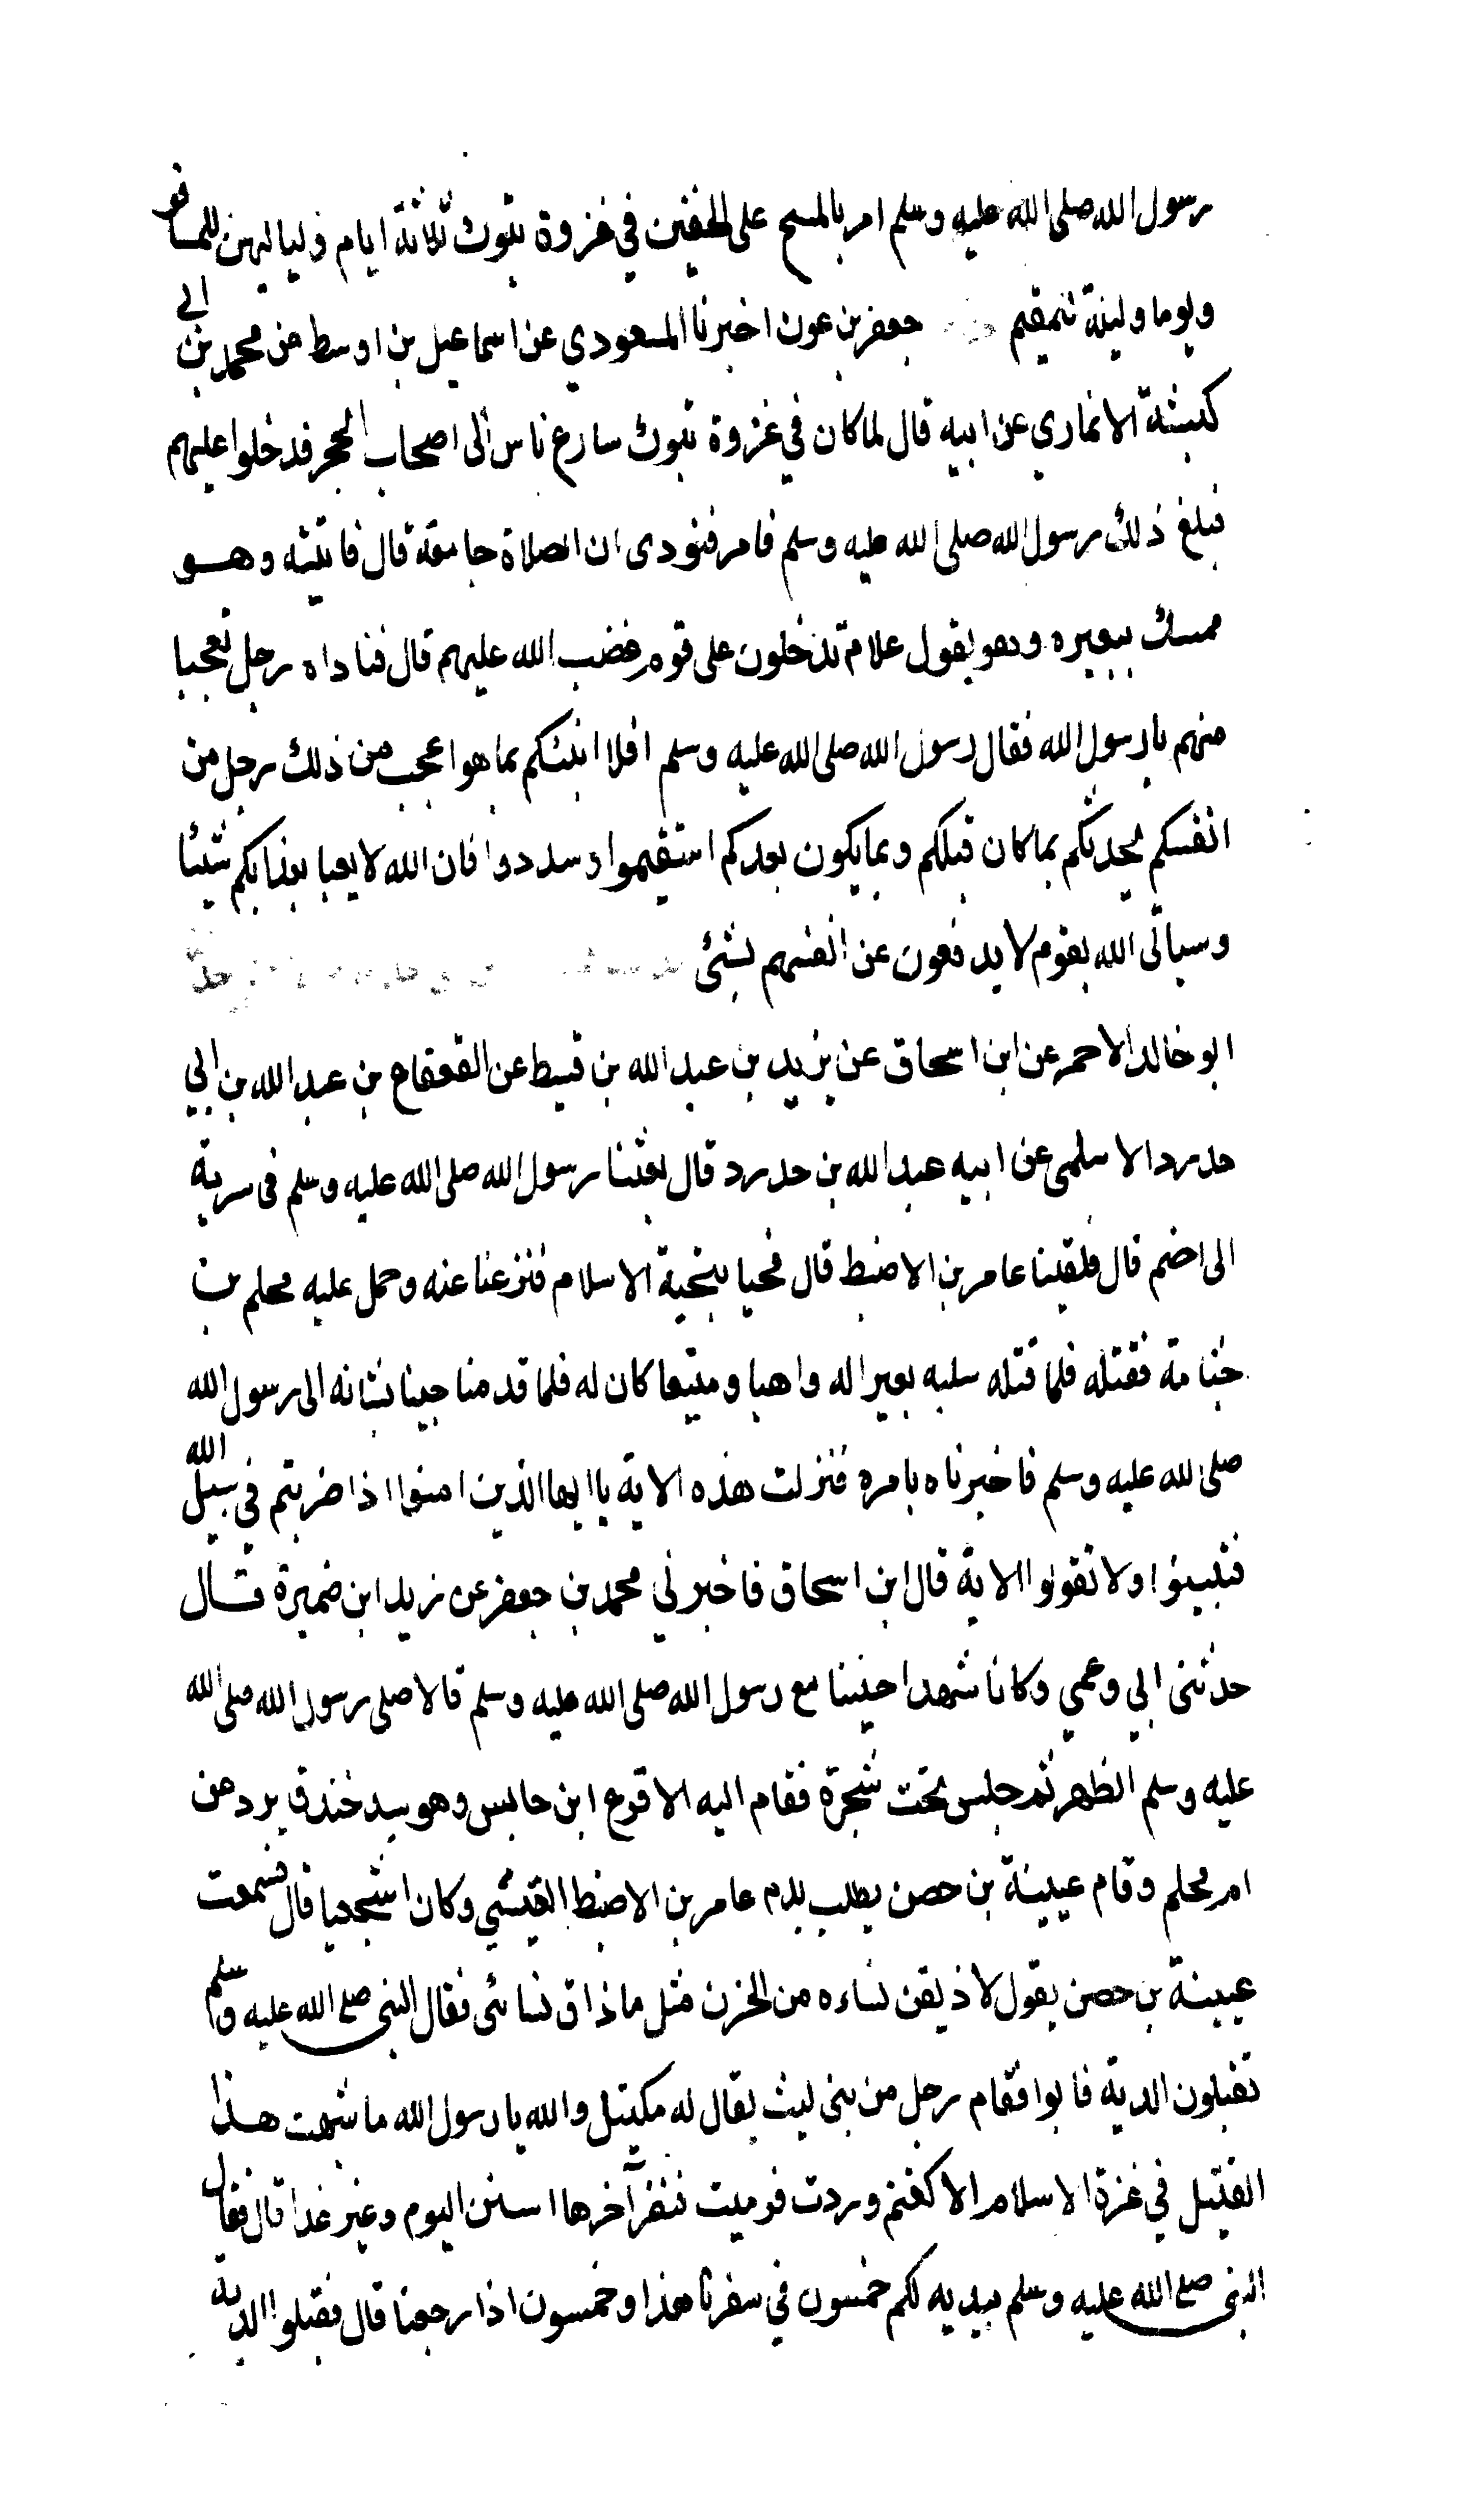 رسول الله صلى الله عليه وسلم امر بالمسح على الخفين في غزوة تبوك ثلاثة ايام ولياليهن للمسافر
ويوما وليلة للمقيم جعفر بن عون اخبرنا المسعودي عن اسماعيل بن اوسط عن محمد بن ابي
كبشة الانماري عن ابيه قال لما كان في غزوة تبوك سارع ناس الى اصحاب الحجر فدخلوا عليهم
فبلغ ذلك رسول الله صلى الله عليه وسلم فامر فنودى ان الصلاة جامعة قال فاتيته وهو
ممسك ببعيره وهو يقول علام تدخلون على قوم غضب الله عليهم قال فناداه رجل تعجبا
منهم يا رسول الله فقال رسول الله صلى الله عليه وسلم افلا انبئكم بما هو اعجب من ذلك رجل من
انفسكم يحدثكم بما كان قبلكم وبما يكون بعدكم استقيموا وسددوا فان الله لا يعبا بعذابكم شيئا
وسياتى الله بقوم لا يدفعون عن انفسهم بشئ
ابو خالد الاحمر عن ابن اسحاق عن يزيد بن عبد الله بن قسيط عن القعقاع بن عبد الله بن ابي
حدرد الاسلمى عن ابيه عبد الله بن حدرد قال بعثنا رسول الله صلى الله عليه وسلم فى سرية
الى اضم قال فلقينا عامر بن الاضبط قال فحيا بتحية الاسلام فنزعنا عنه وحمل عليه محلم بن
جثامة فقتله فلما قتله سلبه بعيرا له واهبا ومتيعا كان له فلما قدمنا جينا بشانه الى رسول الله
صلى الله عليه وسلم فاخبرناه بامره فنزلت هذه الاية يا ايها الذين امنوا اذا ضربتم في سبيل الله
فتبينوا ولا تقولوا الاية قال ابن اسحاق فاخبرني محمد بن جعفر عن زيد ابن ضميرة قال
حدثنى ابي وعمي وكانا شهدا حنينا مع رسول الله صلى الله عليه وسلم قالا صلى رسول الله صلى الله
عليه وسلم الظهر ثم جلس تحت شجرة فقام اليه الاقرع ابن حابس وهو سيد خندق يرد عن
امر محلم وقام عيينة بن حصن يطلب بدم عامر بن الاضبط القيسي وكان اشجعيا قال فسمعت
عيينة بن حصن يقول لاذيقن نساءه من الحزن مثل ماذاق نسائى فقال النبي صلى الله عليه وسلم
تقبلون الدية فابوا فقام رجل من بنى ليث يقال له مكيتل والله يا رسول الله ما شبهت هذا
القتيل في غزة الاسلام الا كغنم وردت فرميت فنفر آخرها اسنن اليوم وغير غدا قال فقال
النبي صلى الله عليه وسلم بيديه لكم خمسون في سفرنا هذا وخمسون اذا رجعنا قال فقبلوا الدية